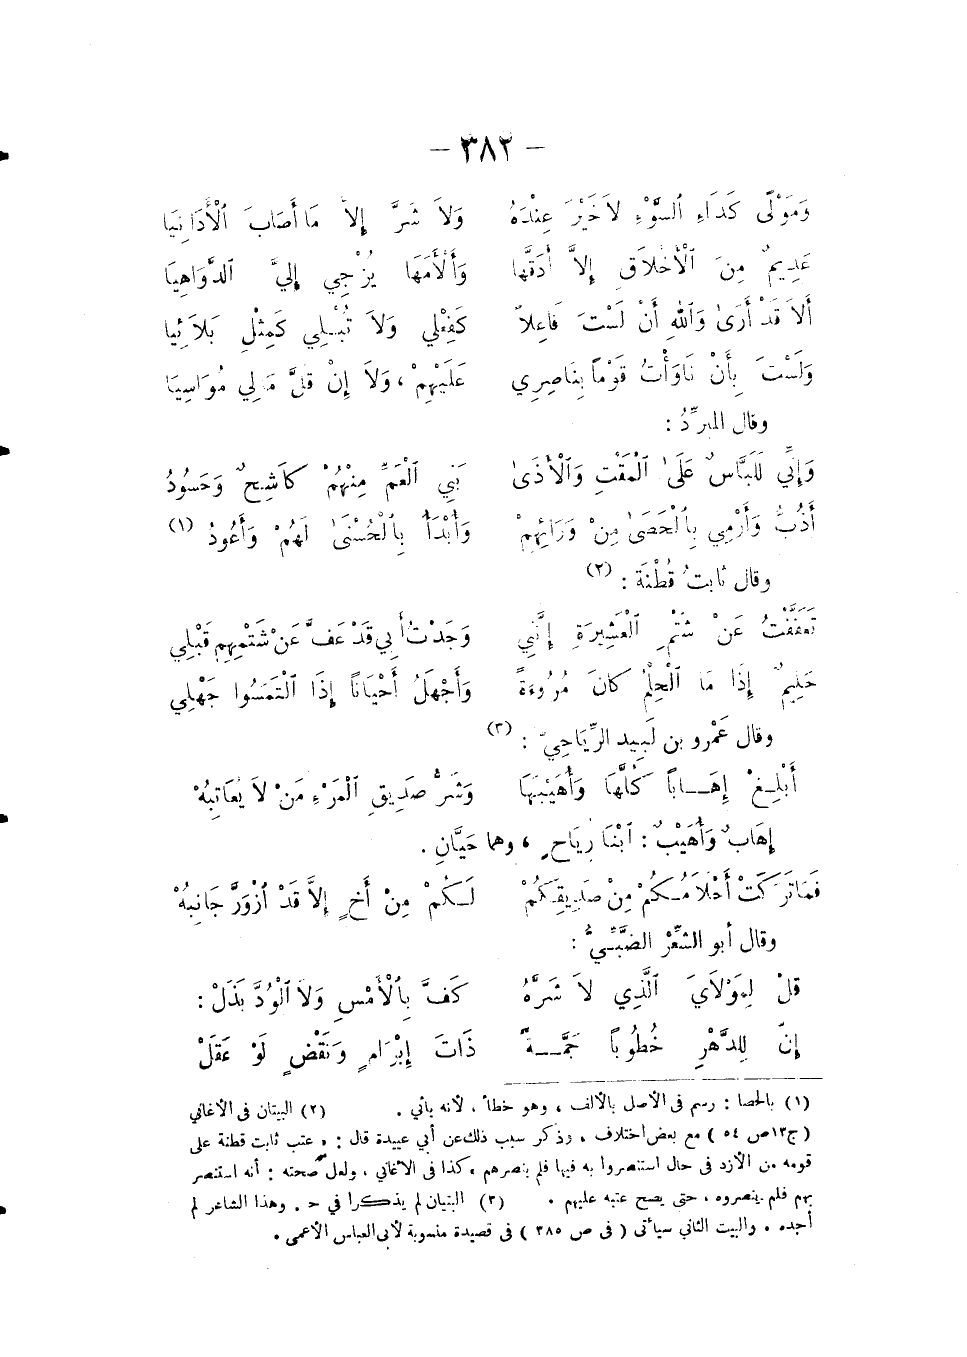 — ٣٨٢ —
وَمَوْلًى كَدَاءِ ٱلسَّوْءِ لَا خَيْرَ عِنْدَهُ وَلَا شَرَّ إِلَّا مَا أَصَابَ ٱلْأَدَانِيَا
عَدِيمٌ مِنَ ٱلْأَخْلَاقِ إِلَّا أَدَقَّهَا وَأَلْأَمَهَا يُزْجِي إِلَيَّ الدَّوَاهِيَا
أَلَا قَدْ أَرَىٰ وَٱللهِ أَنْ لَسْتَ فَاعِلًا كَفِعْلِي وَلَا تُبْلِي كَمِثْلِ بَلَائِيَا
وَلَسْتَ بِأَنْ نَاوَأْتُ قَوْمًا بِنَاصِرِي عَلَيْهِمْ ، وَلَا إِنْ قَلَّ مَالِي مُوَاسِيَا
وقال المبرِّدُ :
وَإِنِّي لَلَبَّاسٌ عَلَىٰ ٱلْمَقْتِ وَٱلْأَذَىٰ بَنِي ٱلْعَمِّ مِنْهُمْ كَاشِحٌ وَحَسُودُ
أَذُبُّ وَأَرْمِي بِٱلْحَصَىٰ مِنْ وَرَائِهِمْ وَأَبْدَأُ بِٱلْحُسْنَىٰ لَهُمْ وَأَعُودُ (١)
وقال ثابتُ قُطْنَةَ (٢) :
تَعَفَّفْتُ عَنْ شَتْمِ ٱلْعَشِيرَةِ إِنَّنِي وَجَدْتُ أَبِي قَدْ عَفَّ عَنْ شَتْمِهِمْ قَبْلِي
حَلِيمٌ إِذَا مَا ٱلْحِلْمُ كَانَ مُرُوءَةً وَأَجْهَلُ أَحْيَانًا إِذَا ٱلْتَمَسُوا جَهْلِي
وقال عَمْرو بن لَبِيد الرِّيَاحِيّ (٣) :
أَبْلِغْ إِهَابًا كُلَّهَا وَأُهَيْبَهَا وَشَرُّ صَدِيقِ ٱلْمَرْءِ مَنْ لَا يُعَاتِبُهْ
إِهَابٌ وَأُهَيْبٌ : ٱبْنَا رِيَاحٍ ، وهما حَيَّانِ .
فَمَا تَرَكَتْ أَحْلَامُكُمْ مِنْ صَدِيقِكُمْ لَكُمْ مِنْ أَخٍ إِلَّا قَدْ ٱزْوَرَّ جَانِبُهْ
وقال أبو الشِّعْر الضَّبِّيُّ :
قُلْ لِمَوْلَايَ ٱلَّذِي لَا شَرُّهُ كَفَّ بِٱلْأَمْسِ وَلَا ٱلْوُدَّ بَذَلْ :
إِنَّ لِلدَّهْرِ خُطُوبًا جَمَّةً ذَاتَ إِبْرَامٍ وَنَقْضٍ لَوْ عَقَلْ
(١) بالحصا : رسم فى الأصل بالألف ، وهو خطأ ، لأنه يأتي . (٢) البيتان فى الأغاني
(ج١٣ص ٥٤) مع بعض اختلاف ، وذكر سبب ذلك عن أبي عبيدة قال : « عتب ثابت قطنة على
قومه من الأزد فى حال استنصروا به فيها فلم ينصرهم » كذا فى الأغاني ، ولعل صحته : أنه استنصر
بهم فلم ينصروه ، حتى يصح عتبه عليهم . (٣) البيتان لم يذكرا في ح . وهذا الشاعر لم
أجده . والبيت الثاني سيأتى ( فى ص ٣٨٥ ) فى قصيدة منسوبة لأبى العباس الأعمى .